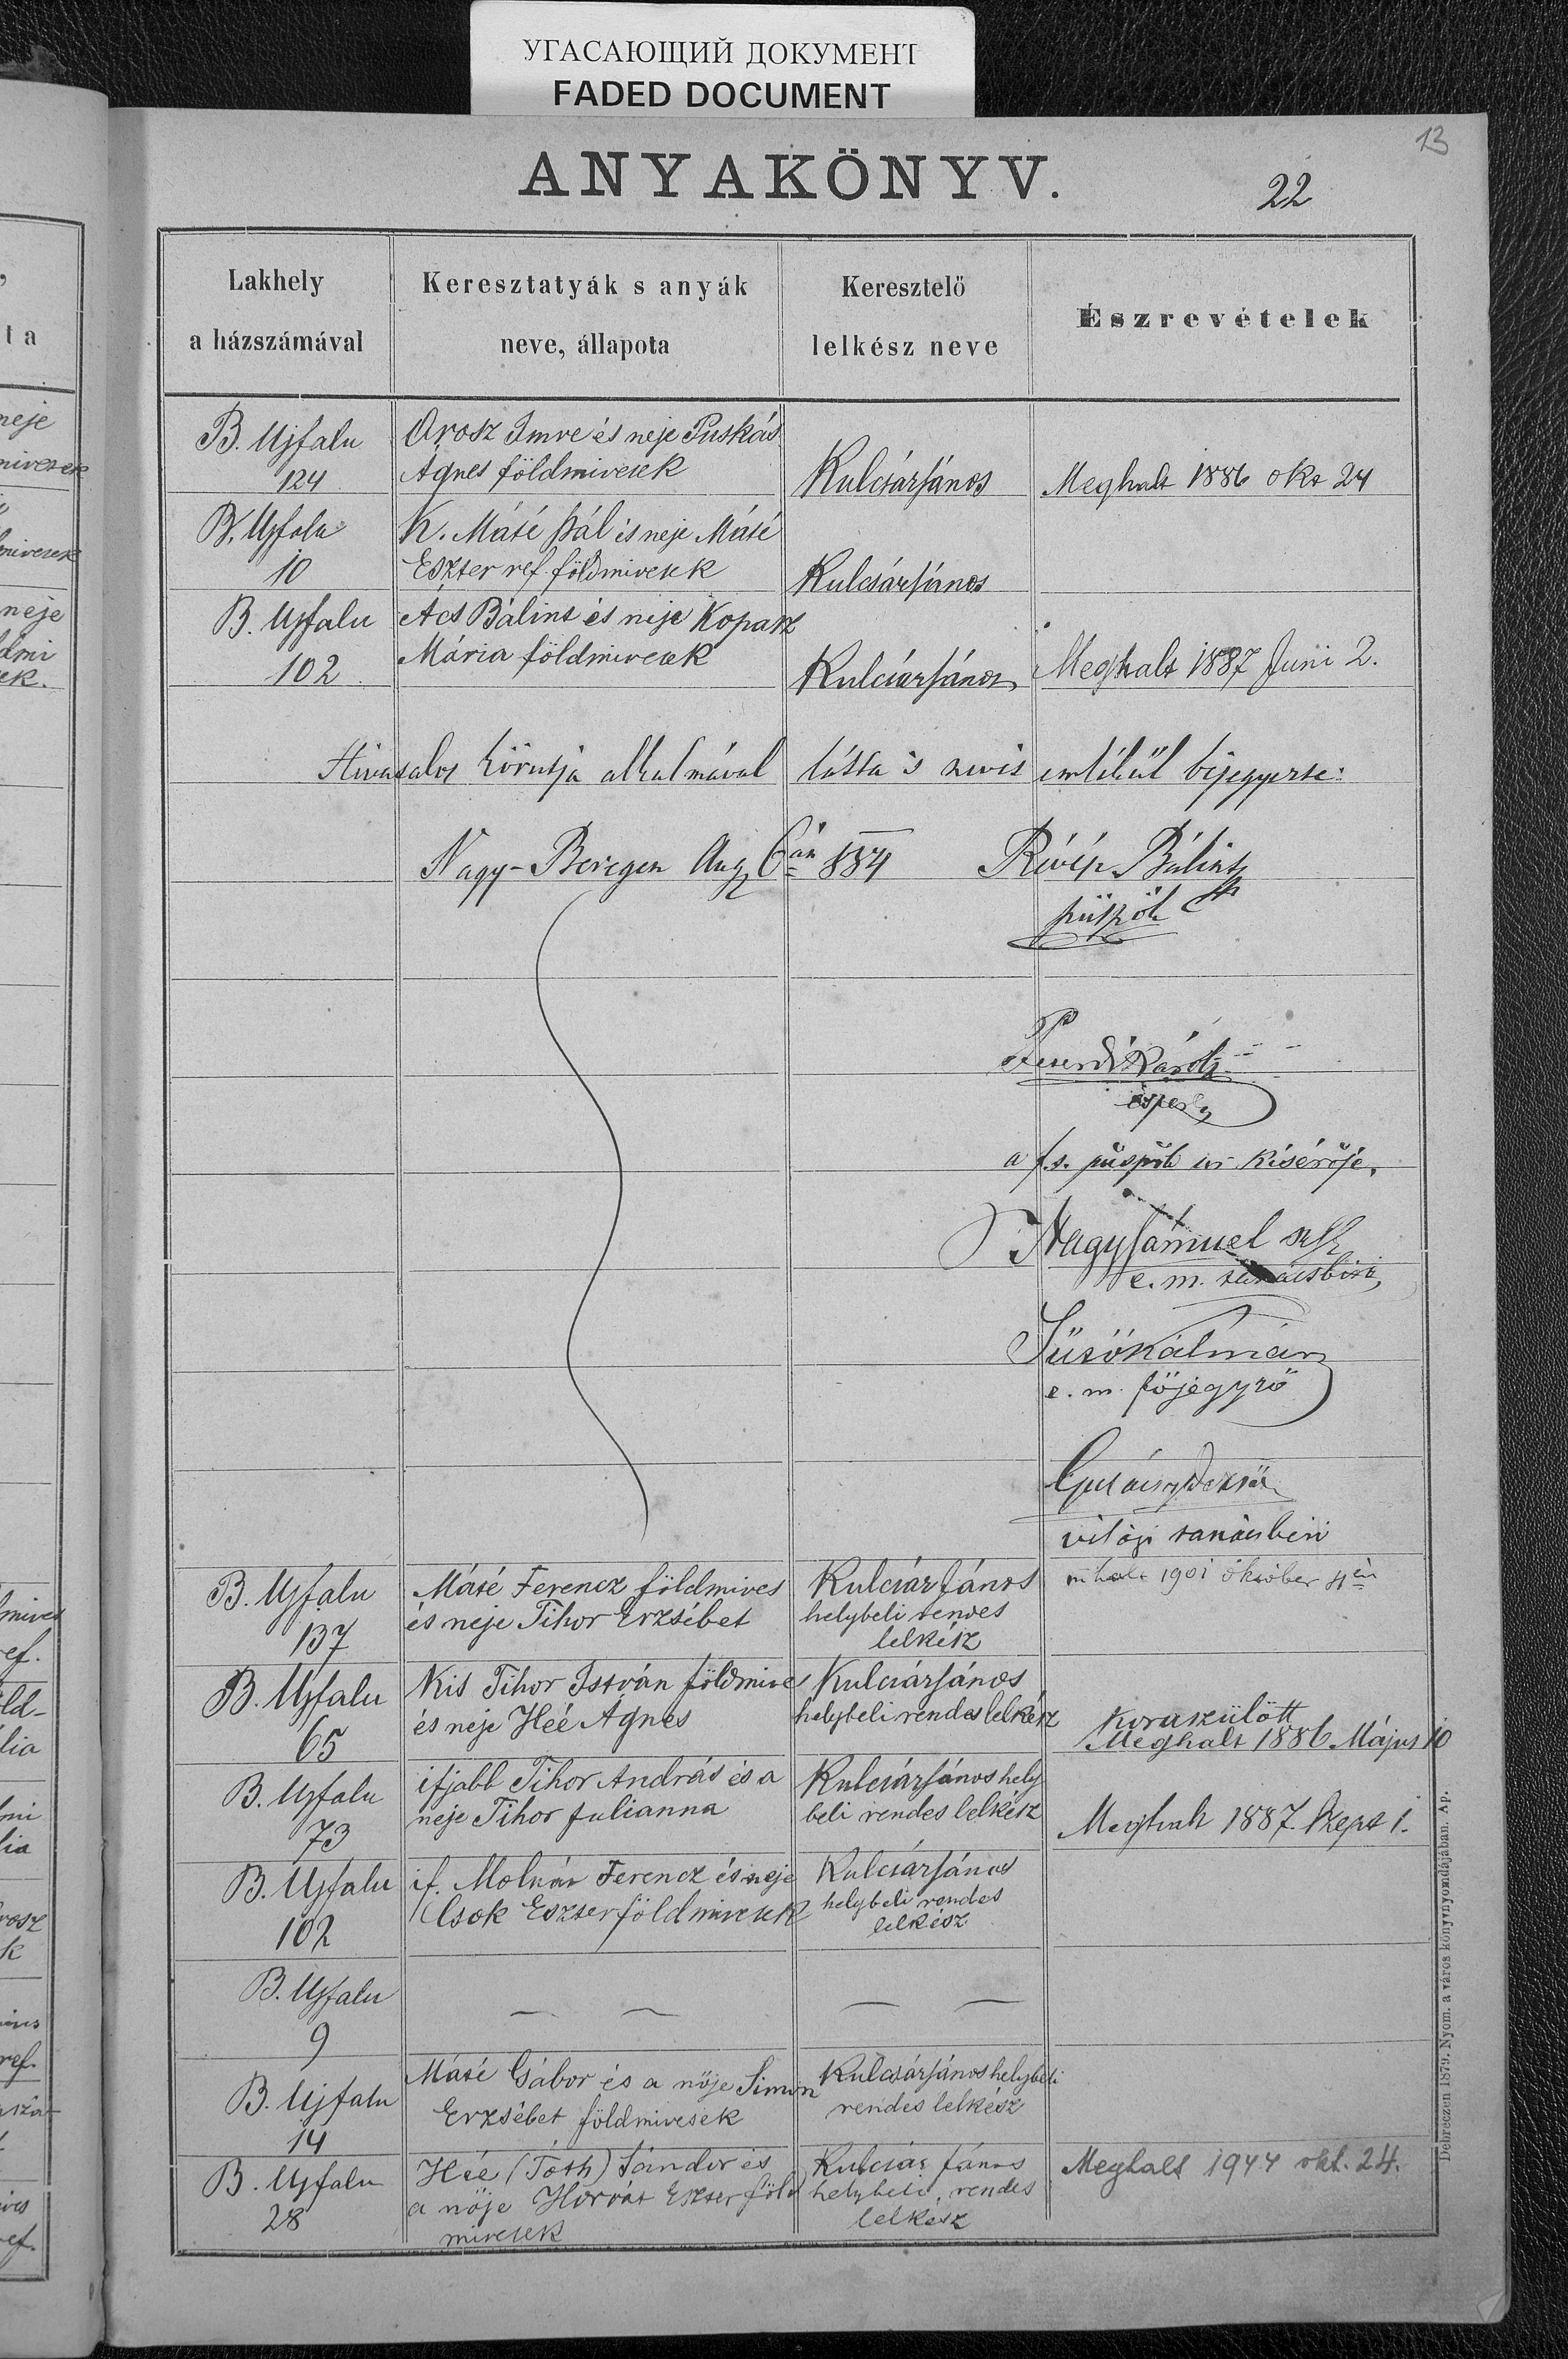 УГАСАЮЩИЙ ДОКУМЕНТ
FADED DOCUMENT
13
ANYAKÖNYV.
22
Lakhely
a házszámával
Keresztatyák s anyák
neve, állapota
Keresztelő
lelkész neve
Észrevételek
B. Ujfalu
124
Orosz Imre és neje Puskás
Ágnes földmivesek
Kulcsár János
Meghalt 1886 okt 24
B. Ujfalu
10
K. Máté Pál és neje Máté
Eszter ref. földmivesek
Kulcsár János
B. Ujfalu
102
Ács Bálint és neje Kopasz
Mária földmivesek
Kulcsár János
Meghalt 1887 Juni 2.
Hivatalos körutja alkalmával látta s nevét emlékül bejegyezte:
Nagy-Beregen Aug 6án 884
Révész Bálint
püspök
Károly
espes
a f.t. püspök ur kisérője.
Nagy Sámuel
e.m. tanácsbiró
Kálmán
e.m. főjegyző
Dezső
világi tanácsbiró
B. Ujfalu
137
Máté Ferencz földmives
és neje Tihor Erzsébet
Kulcsár János
helybeli rendes
lelkész
1901 október 4én
B. Ujfalu
65
Kis Tihor István földmives
és neje Héé Ágnes
Kulcsár János
helybeli rendes lelkész
Koraszülött
Meghalt 1886 Május 10
B. Ujfalu
73
ifjabb Tihor András és a
neje Tihor Julianna
Kulcsár János hely
beli rendes lelkész
Meghalt 1887. Szept 1.
B. Ujfalu
102
if. Molnár Ferencz és neje
Csok Eszter földmivesek
Kulcsár János
helybeli rendes
lelkész
B. Ujfalu
9
B. Ujfalu
14
Máté Gábor és a nője Simon
Erzsébet földmivesek
Kulcsár János helybeli
rendes lelkész
B. Ujfalu
28
Héé (Tóth) Sándor és
a nője Horvát Eszter föld
mivesek
Kulcsár János
helybeli rendes
lelkész
Meghalt 1944 okt. 24.
Debreczen 1879. Nyom. a város könyvnyomdájában. Ap.